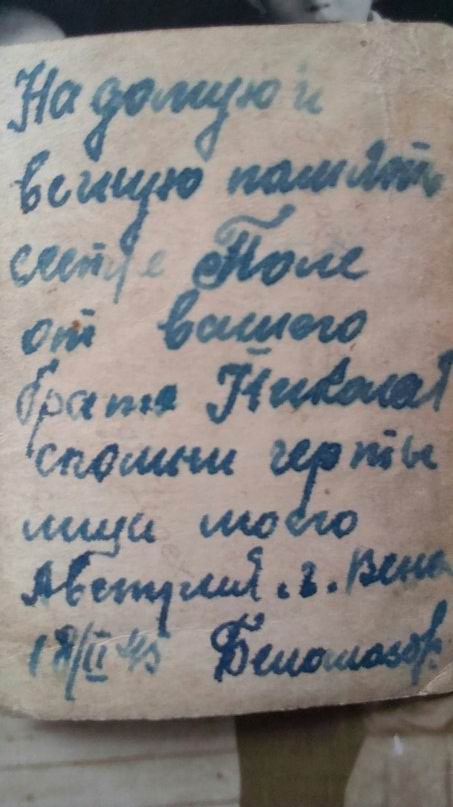 На долгую и
вечную память
сестре Поле
от вашего
брата Николая
спомни черты
лица моего
Австрия. г. Вена
18/II 45